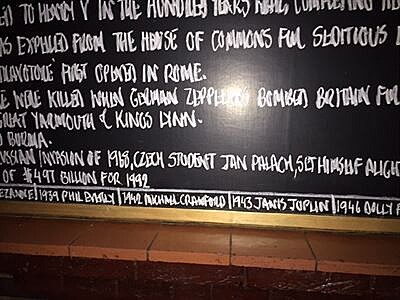 TO HENRY V IN THE HUNDRED YEARS WAR, COMPLETING THE
AS EXPELLED FROM THE HOUSE OF COMMONS FOR SEDITIOUS
FIRST OPENED IN ROME.
WERE KILLED WHEN GERMAN ZEPPELINS BOMBED BRITAIN FOR
GREAT YARMOUTH & KINGS LYNN.
BURMA.
INVASION OF 1968, CZECH STUDENT JAN PALACH, SET HIMSELF ALIGHT
OF $497 BILLION FOR 1992
EZANNE | 1939 PHIL EVERLY | 1942 MICHAEL CRAWFORD | 1943 JANIS JOPLIN | 1946 DOLLY P